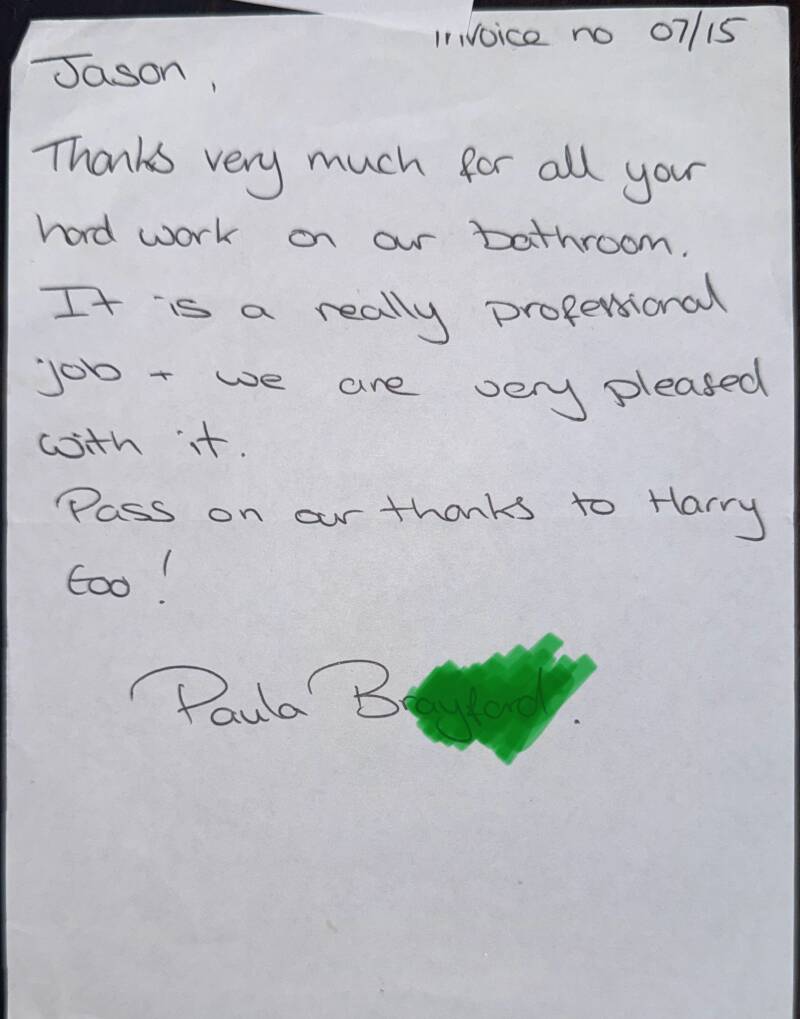 invoice no 07/15
Jason,
Thanks very much for all your
hard work on our bathroom.
It is a really professional
job + we are very pleased
with it.
Pass on our thanks to Harry
too!
Paula B